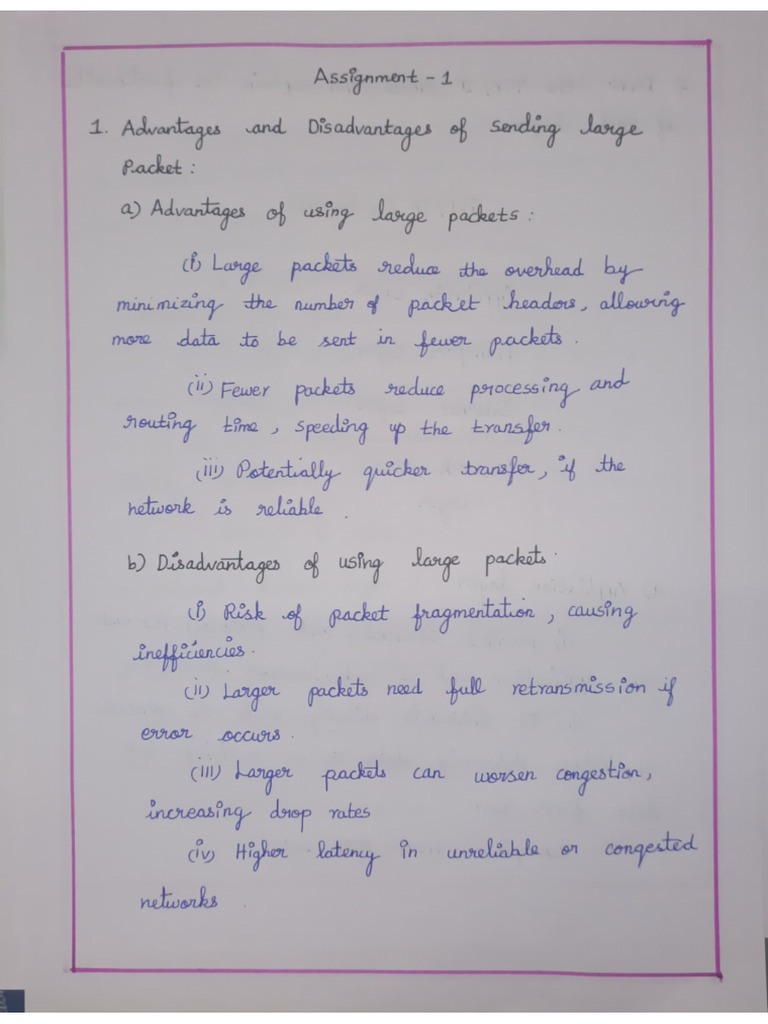 Assignment - 1
1. Advantages and Disadvantages of sending large
Packet :
a) Advantages of using large packets :
(i) Large packets reduce the overhead by
minimizing the number of packet headers, allowing
more data to be sent in fewer packets.
(ii) Fewer packets reduce processing and
routing time, speeding up the transfer.
(iii) Potentially quicker transfer, if the
network is reliable.
b) Disadvantages of using large packets.
(i) Risk of packet fragmentation, causing
inefficiencies.
(ii) Larger packets need full retransmission if
error occurs.
(iii) Larger packets can worsen congestion,
increasing drop rates
(iv) Higher latency in unreliable or congested
networks.